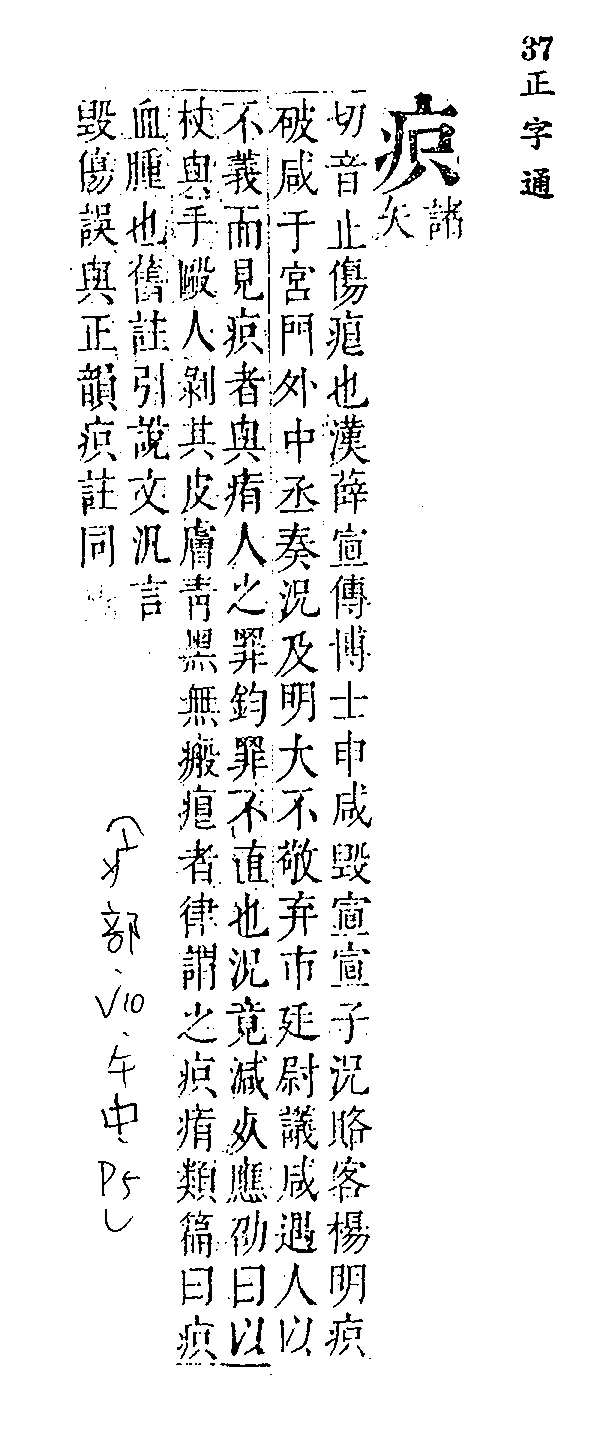 37正字通
疻諸矢
切音止傷瘢也漢薛宣傳博士申咸毀宣宣子況賂客楊明疻
破咸于宮門外中丞奏況及明大不敬弃市廷尉議咸遇人以
不義而見疻者與痏人之罪鈞罪不直也況竟減死應劭曰以
杖與手毆人剝其皮膚青黑無瘢痕者律謂之疻痏類篇曰疻
血腫也舊註引說文汎言
毀傷誤與正韻疻註同
部、V10、午中P5